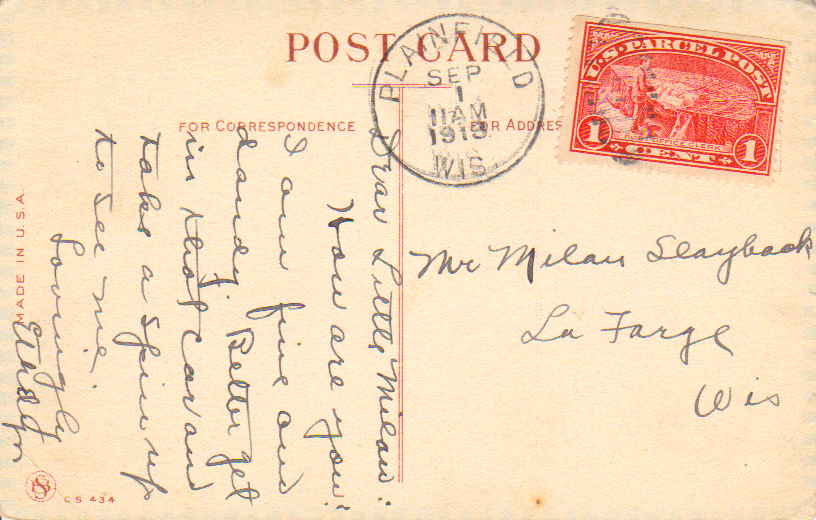 POST CARD
PLAINFIELD
SEP
1
11AM
1913
WIS.
U.S. PARCEL POST
1
POST OFFICE CLERK
1
CENT
FOR CORRESPONDENCE
FOR ADDRESS
Mr Milan Slayback
La Farge
Wis
Dear Little Milan:
How are you?
I am fine and
dandy. Better get
in that car and
take a spin up
to see me.
Lovingly
MADE IN U.S.A.
CS 434